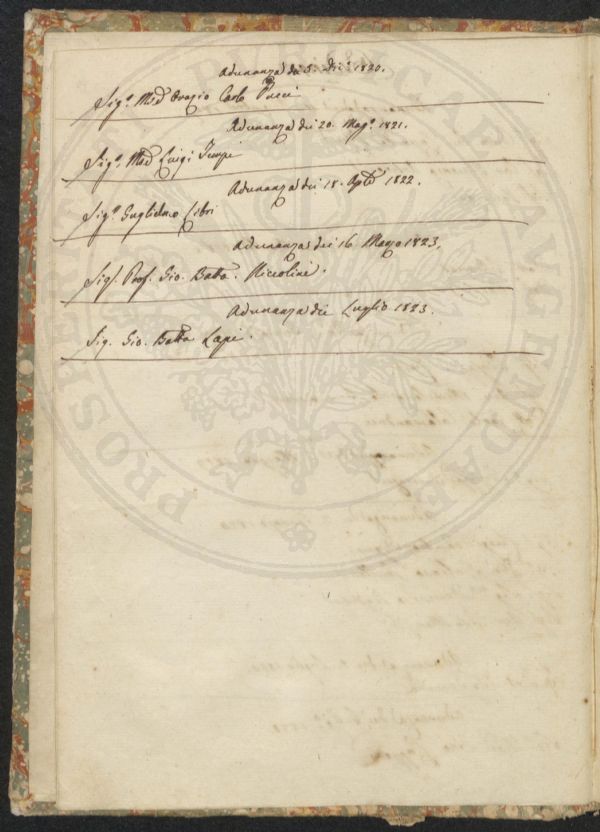 Adunanza de' 5. Dic.e 1820.
Sig.r Mse Orazio Carlo Pucci
Adunanza dei 20. Mag.o 1821.
Sig.r Mse Luigi Tempi
Adunanza dei 18. 1822.
Sig.r Guglielmo Libri
Adunanza dei 16. Marzo 1823.
Sig.r Prof. Gio. Batta. Niccolini.
Adunanza di Luglio 1823.
Sig. Gio. Batta Lapi.
PROSPERITATI PUBLICAE AUGENDAE